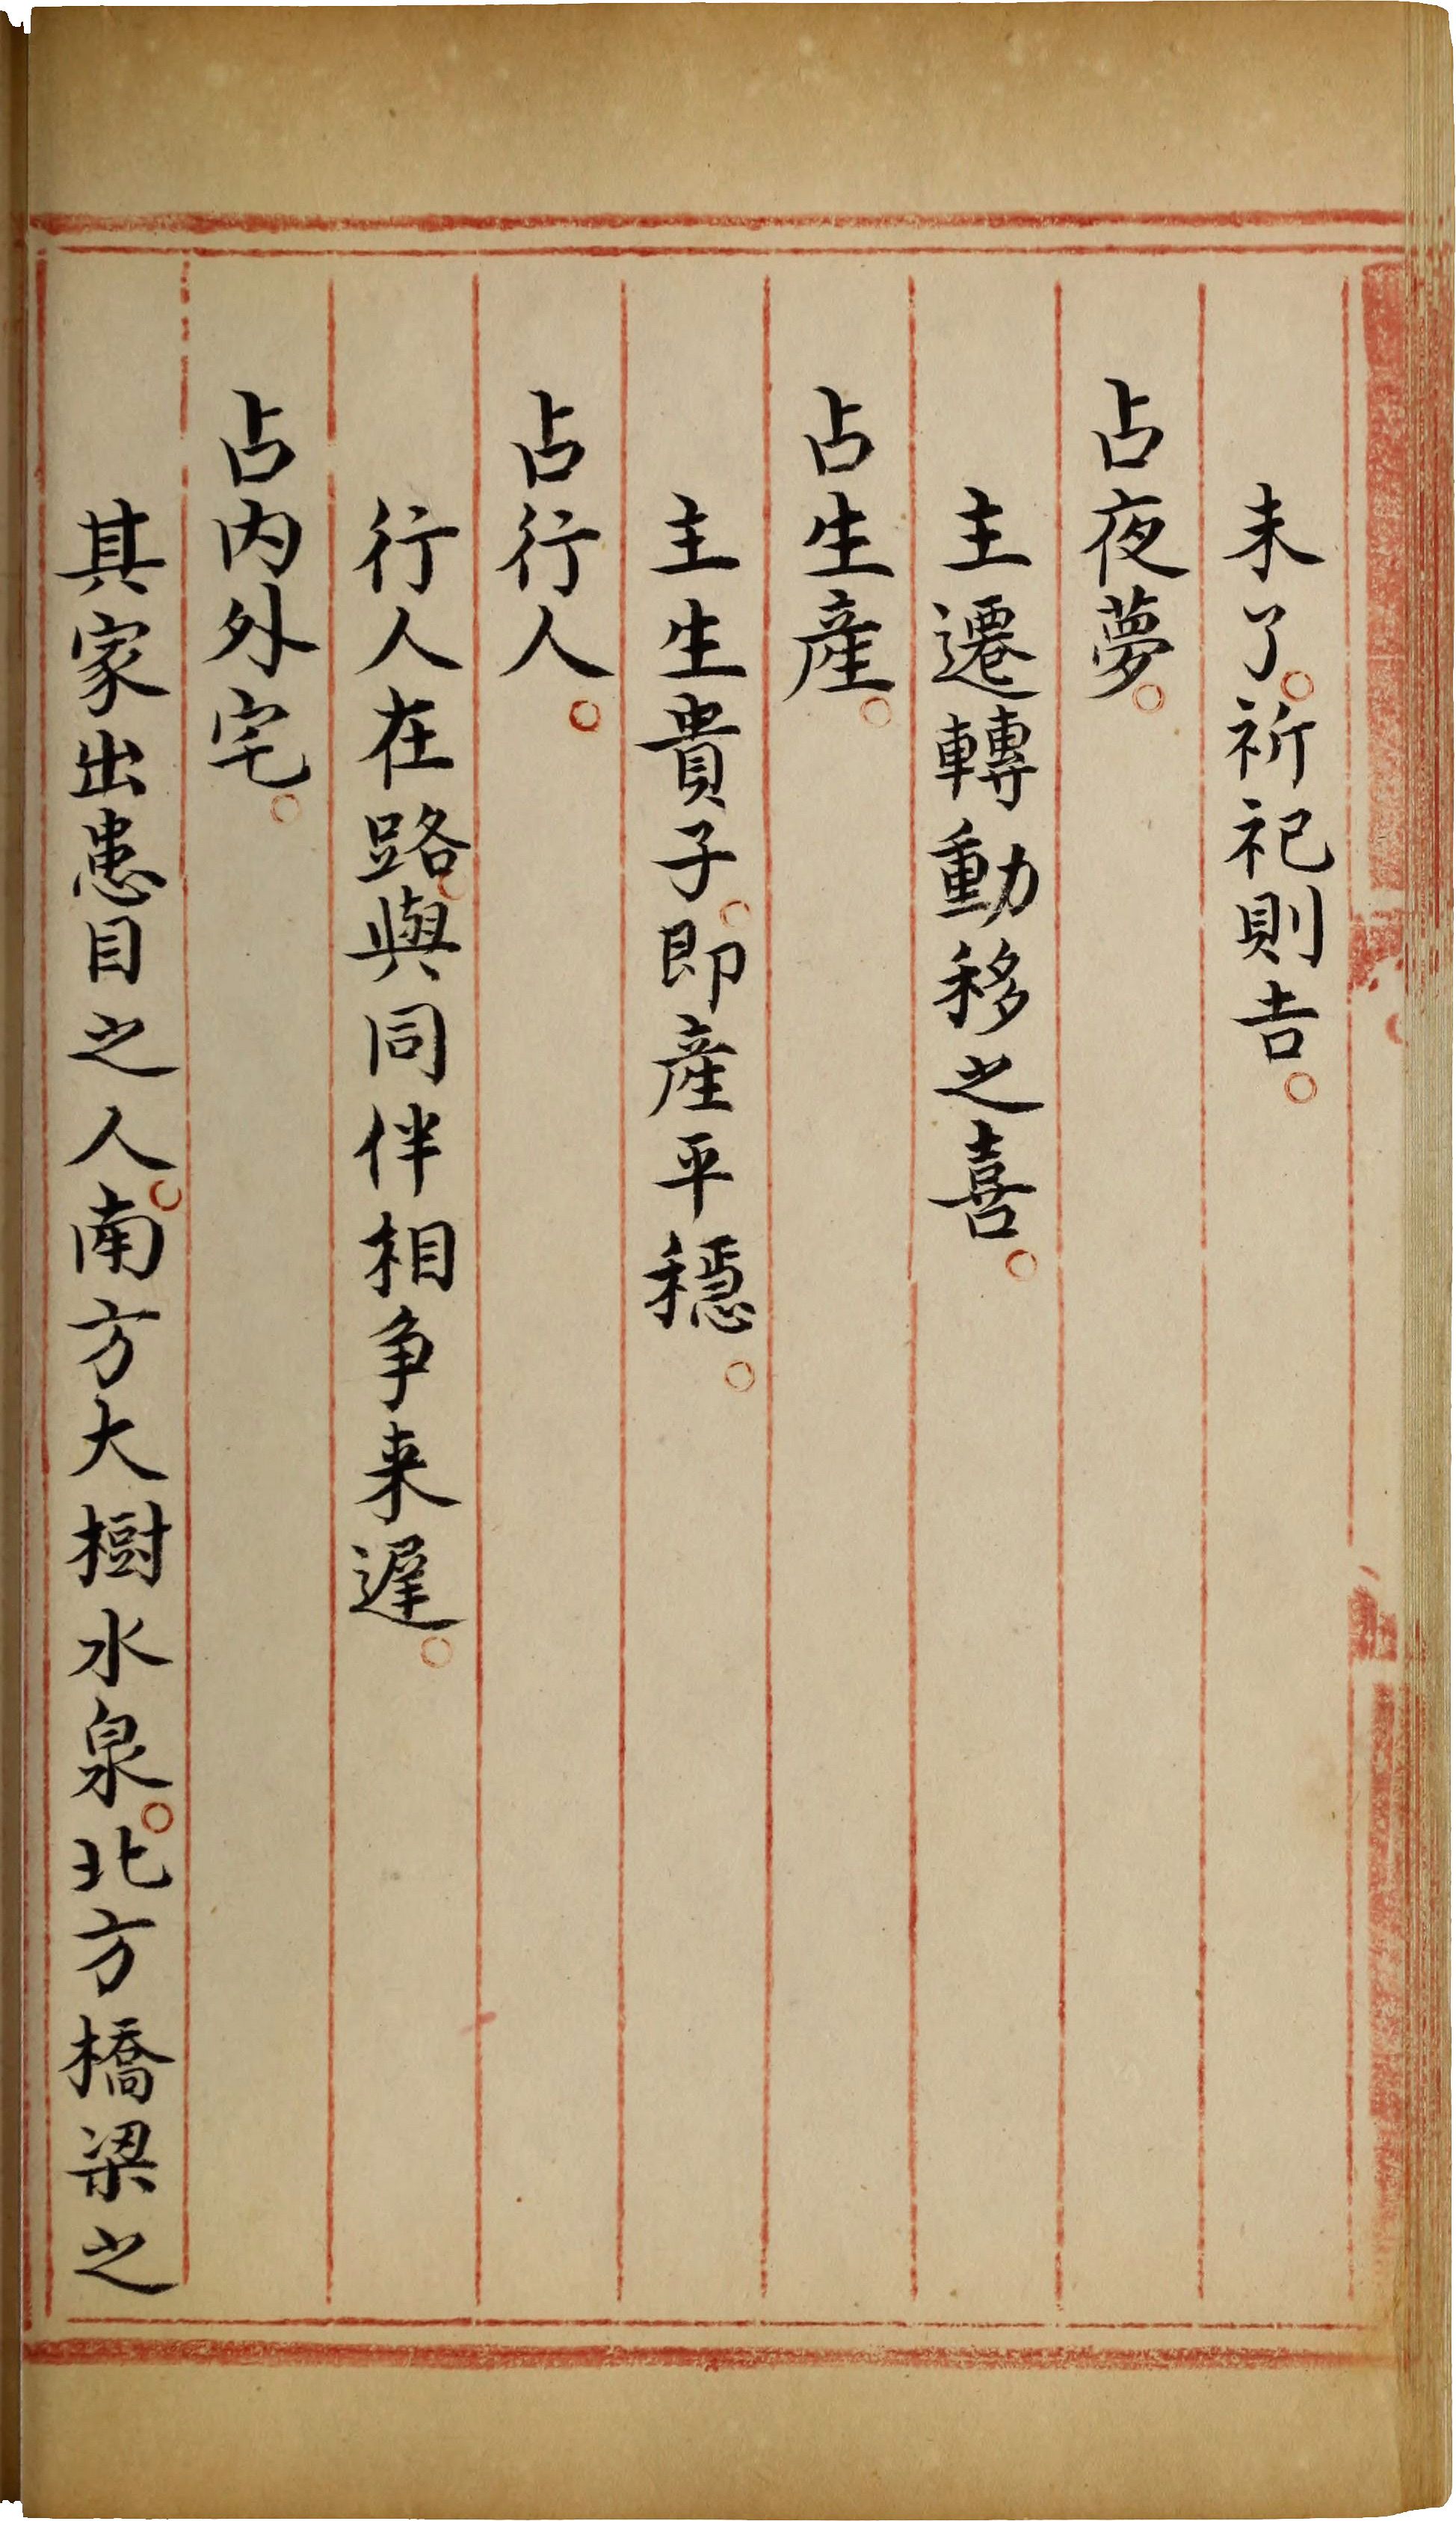 未了。祈祀則吉。
占夜夢。
主遷轉動移之喜。
占生產。
主生貴子。即產平穩。
占行人。
行人在路。與同伴相爭来遲。
占內外宅。
其家出患目之人。南方大樹水泉。北方橋梁之